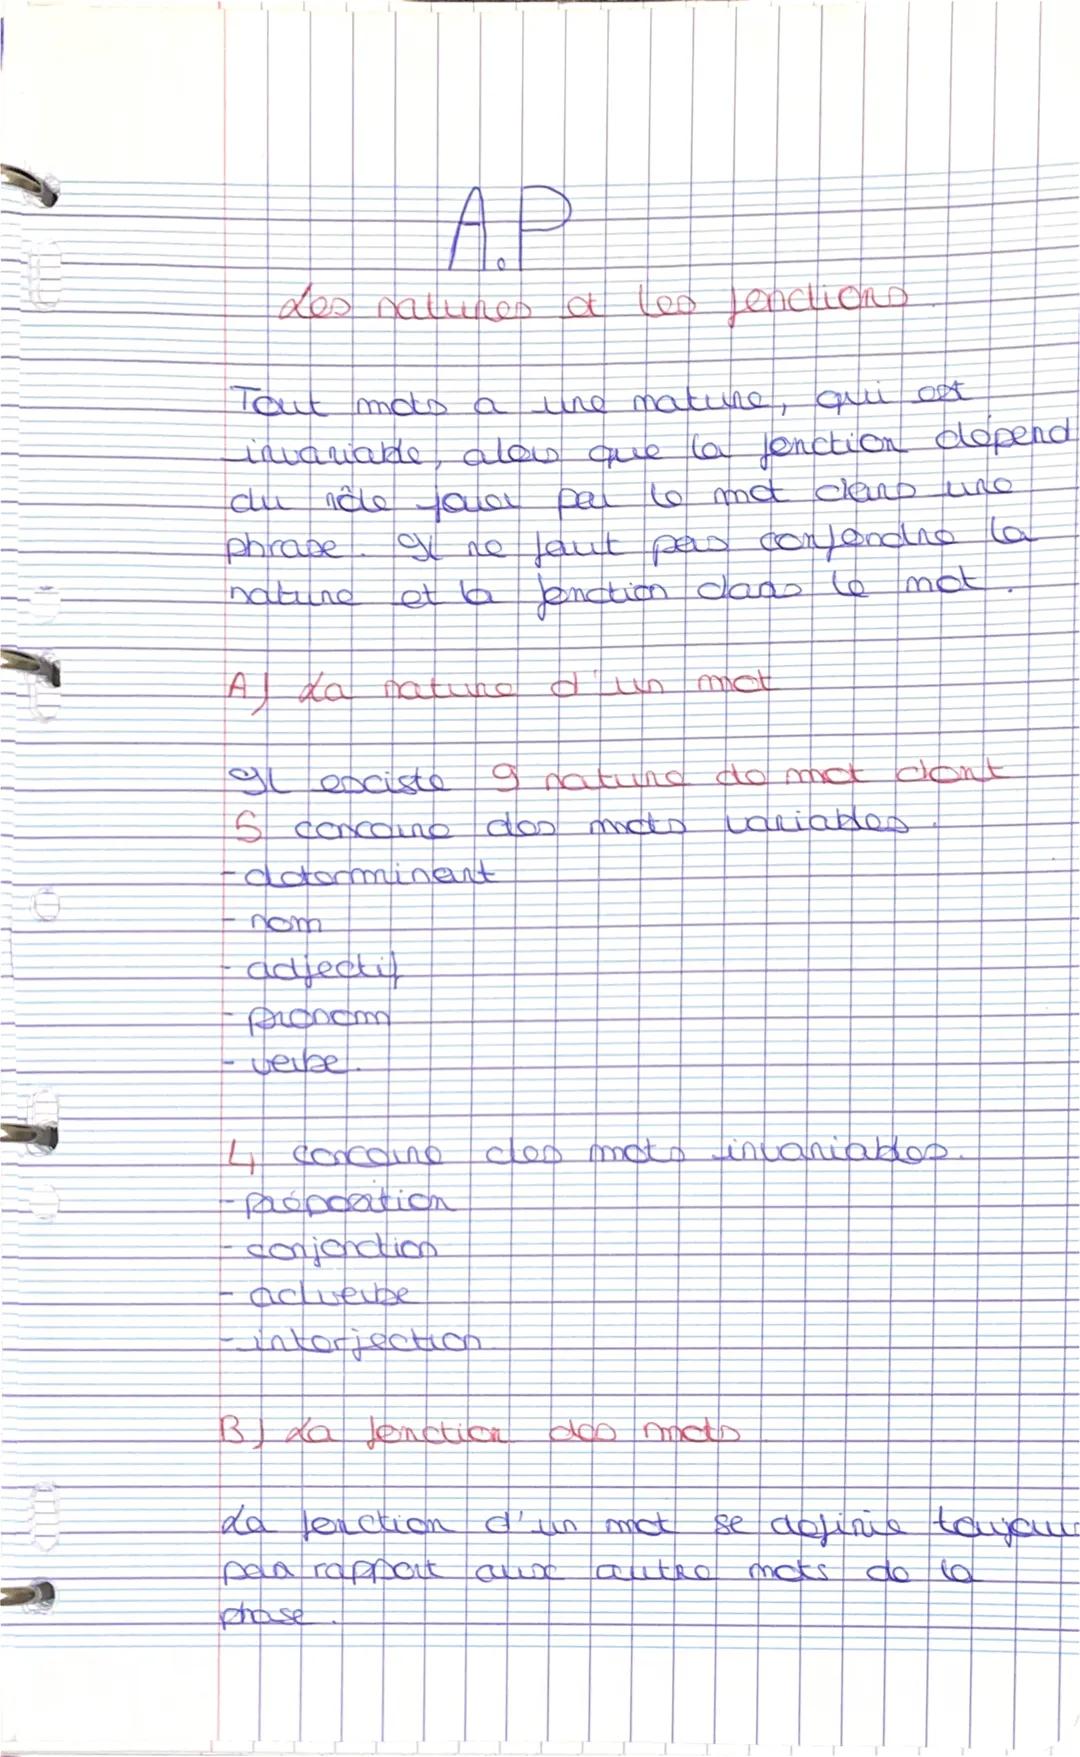 A.P
Les natures et les fonctions
Tout mots a une nature, qui est
invariable, alors que la fonction dépend
du rôle jouer par le mot dans une
phrase. Il ne faut pas confondre la
nature et la fonction dans le mot.
A) La nature d'un mot
Il exciste 9 nature de mot dont
5 concerne des mots variables.
- déterminent
- nom
- adjectif
- pronom
- verbe.
4 concerne des mots invariables.
- préposition
- conjonction
- adverbe
- interjection
B) La fonction des mots
La fonction d'un mot se définie toujours
par rapport aux autre mots de la
phase.